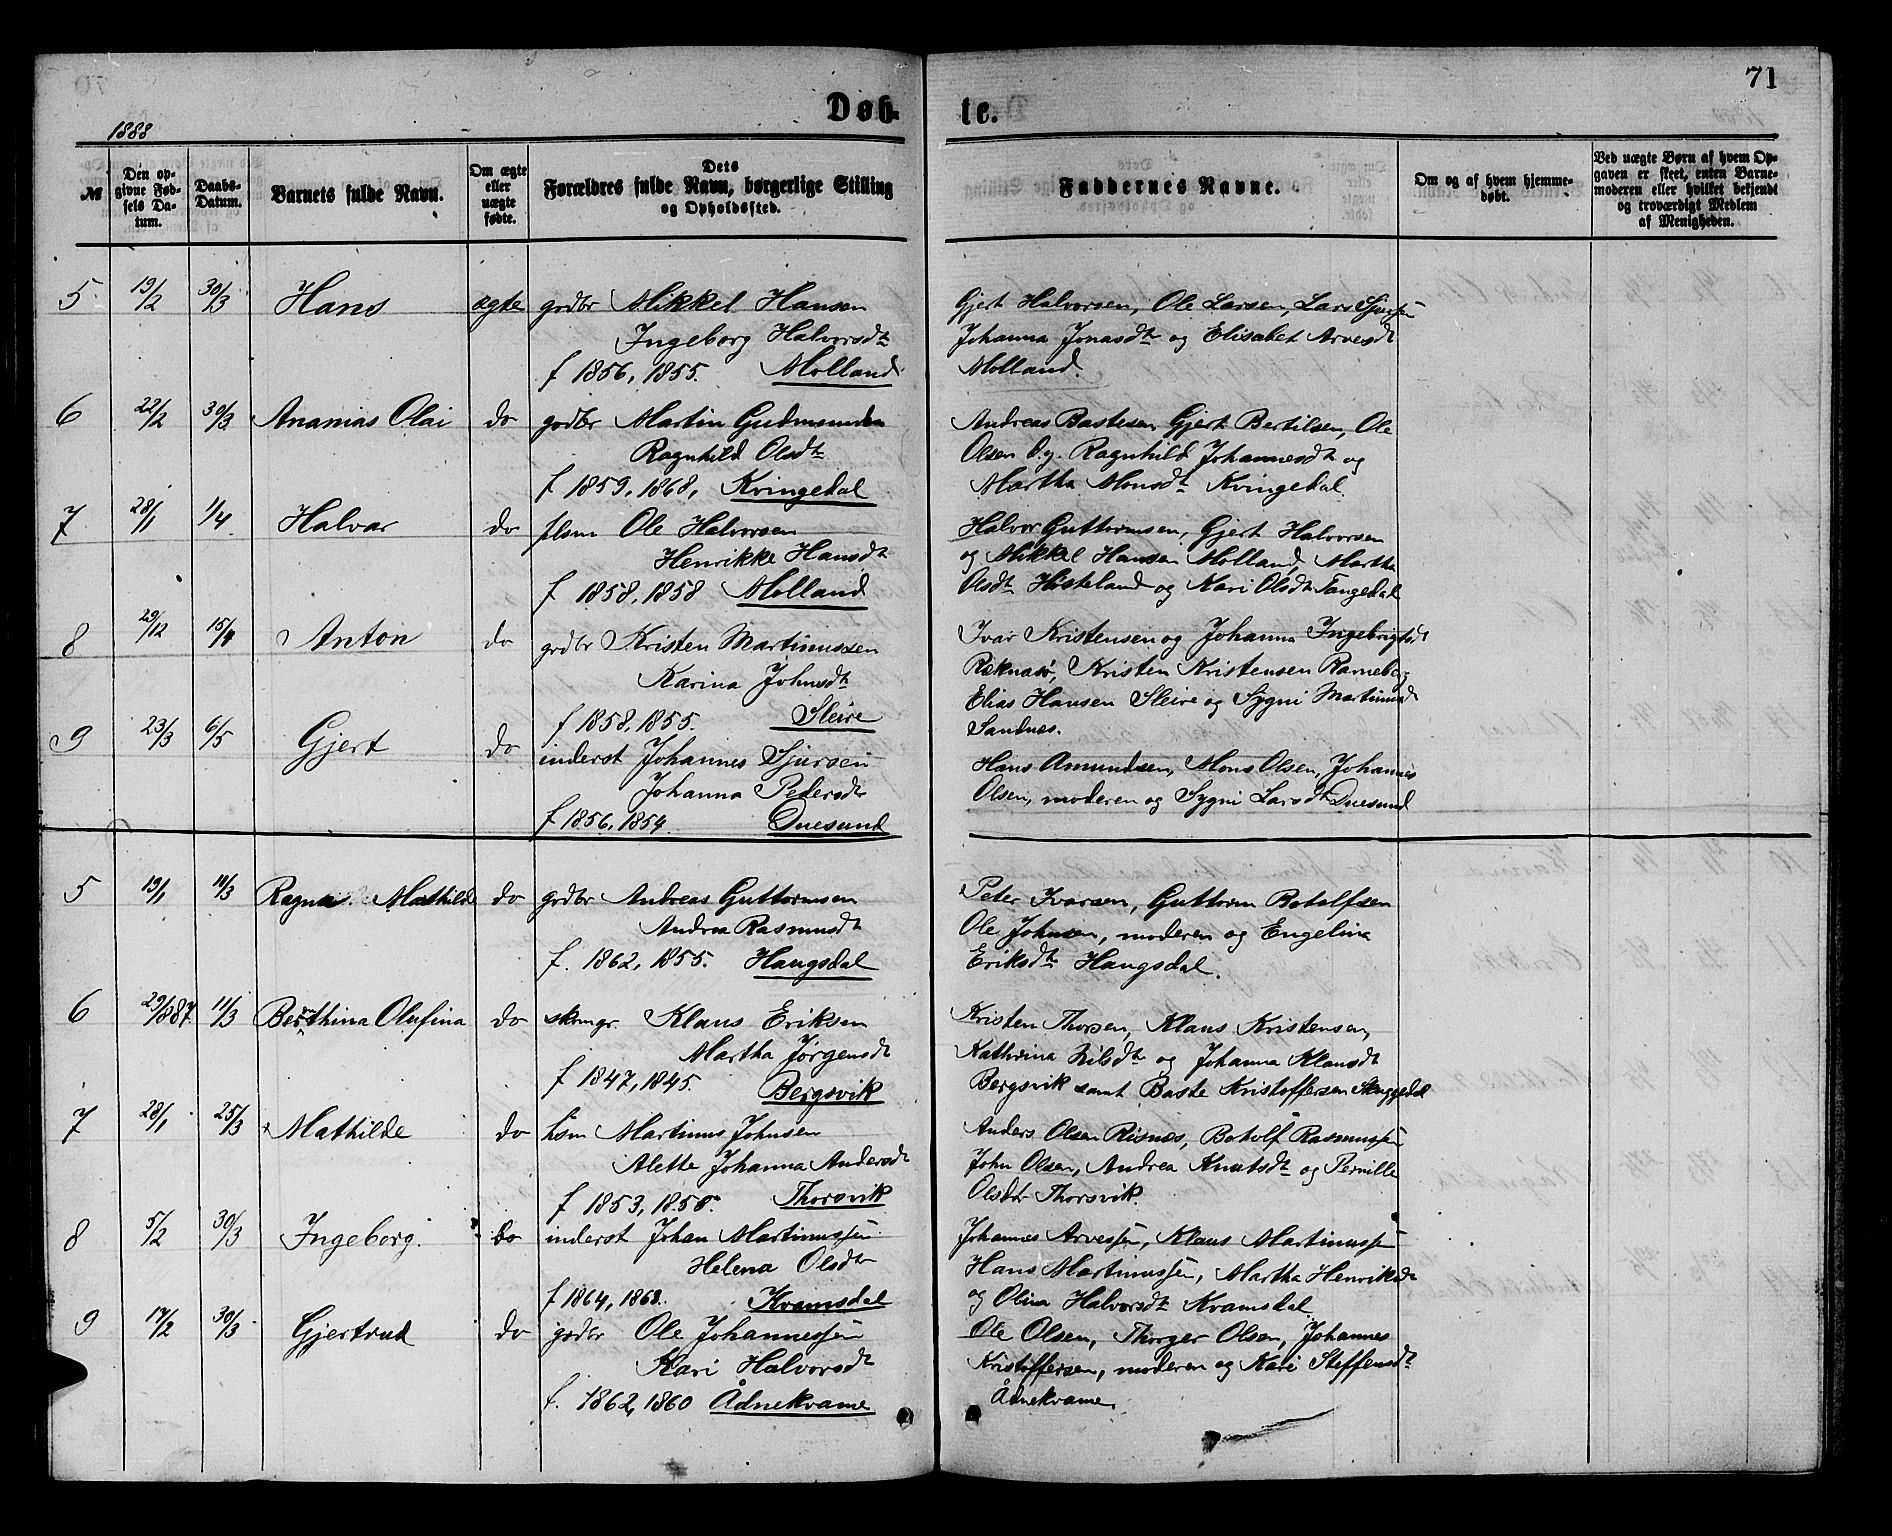 71
Døb-
te.
1888
№
Den op-
givne Fød-
sels Da-
tum.
Daabs-
Datum.
Barnets fulde Navn.
Om ægte
eller
uægte
fødte.
Dets
Forældres fulde Navn, borgerlige Stilling
og Opholdssted.
Faddernes Navne.
Om og af hvem hjemme-
døbt.
Ved uægte Børn af hvem Op-
gaven er skeet, enten Barne-
moderen eller hvilket bekjendt
og troværdigt Medlem
af Menigheden.
5 19/2 30/3 Hans ægte grdbr Mikkel Hansen
Ingeborg Halvorsdtr
f 1856, 1855. Molland
Gjert Halvorsen, Ole Larsen, Lars
Johanna Jonasdtr og Elisabet Arvesdt
Molland.
6 22/2 30/3 Ananias Olai do grdbr Martin Gudmundsen
Ragnhild Olsdtr
f 1859, 1868, Kvingedal
Andreas Bastesen Gjert Bertilsen, Ole
Olsen d.y. Ragnhild Johannesdtr og
Martha Monsdtr Kvingedal.
7 28/1 1/4 Halvar do plsm Ole Halvorsen
Henrikke Hansdtr
f 1858, 1858 Molland
Halvor Guttormsen, Gjert Halvorsen
og Mikkel Hansen Molland, Martha
Olsdtr Histeland og Kari Olsdtr Tangedal
8 29/12 15/4 Anton do grdbr Kristen Martinussen
Karina Johnsdtr
f 1858, 1855. Sleire
Ivar Kristensen og Johanna Ingebrigtsdt
Ræknasø, Kristen Kristensen Rarneberg
Elias Hansen Sleire og Sygni Martinusd
Sandnes.
9 23/3 6/5 Gjert do inderst Johannes Sjursen
Johanna Pedersdtr
f 1856, 1854 Duesund
Hans Amundsen, Mons Olsen, Johannes
Olsen, moderen og Sygni Larsdtr Duesund
5 19/1 11/3 Ragna Mathilde do grdbr Andreas Guttormsen
Andrea Rasmusdtr
f. 1862, 1855. Haugsdal
Peter Ivarsen, Guttorm Botolfsen
Ole Johnsen, moderen og Engelina
Eriksdtr Haugsdal.
6 29/1287. 11/3 Berthina Olufina do Klaus Eriksen
Martha Jørgensdt
f 1847, 1845. Bergsvik
Kristen Thorsen, Klaus Kristensen,
Kathrina Nilsdtr og Johanna Klausdt
Bergsvik samt Baste Kristoffersen Skuggedal
7 28/1 25/3 Mathilde do hsm Martinus Johnsen
Alette Johanna Andersdt
f 1853, 1850. Thorsvik
Anders Olsen Risnes, Botolf Rasmussen
John Olsen, Andrea Knutsdtr og Pernille
Olsdtr Thorsvik.
8 5/2 30/3 Ingeborg. do inderst Johan Martinussen
Helena Olsdtr
f 1864, 1863. Kvamsdal
Johannes Arvessen, Klaus Martinussen
Hans Martinussen, Martha Henriksdt
og Olina Halvorsdtr Kvamsdal
9 17/2 30/3 Gjertrud do grdbr Ole Johannessen
Kari Halvorsdtr
f. 1862, 1860 Ådnekvame
Ole Olsen, Thorger Olsen, Johannes
Kristoffersen, moderen og Kari Steffensdtr
Ådnekvame.